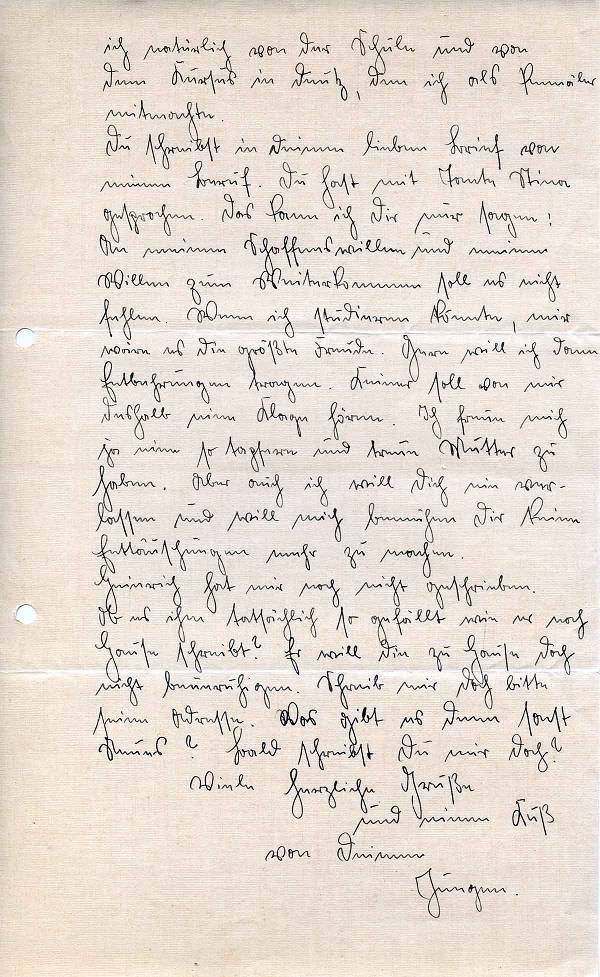 ich natürlich von der Schule und von
dem Kursus in Deutz, den ich als Pennäler
mitmachte.
Du schreibst in Deinem lieben Brief von
meinem Beruf. Du hast mit Tante Stina
gesprochen. Das kann ich Dir nur sagen:
An meinem Schaffenswillen und meinem
Willen zum Weiterkommen soll es nicht
fehlen. Wenn ich studieren könnte, mir
wäre es die größte Freude. Gern will ich dann
Entbehrungen tragen. Keiner soll von mir
deshalb eine Klage hören. Ich freue mich
ja eine so tapfere und treue Mutter zu
haben. Aber auch ich will Dich nie ver-
lassen und will mich bemühen Dir keine
Enttäuschungen mehr zu machen.
Heinrich hat mir noch nicht geschrieben.
Ob es ihm tatsächlich so gefällt wie er nach
Hause schreibt? Er will die zu Hause doch
nicht beunruhigen. Schreib mir doch bitte
seine Adresse. Was gibt es denn sonst
Neues? Bald schreibst Du mir doch?
Viele herzliche Grüße
und einen Kuß
von Deinem
Jungen.